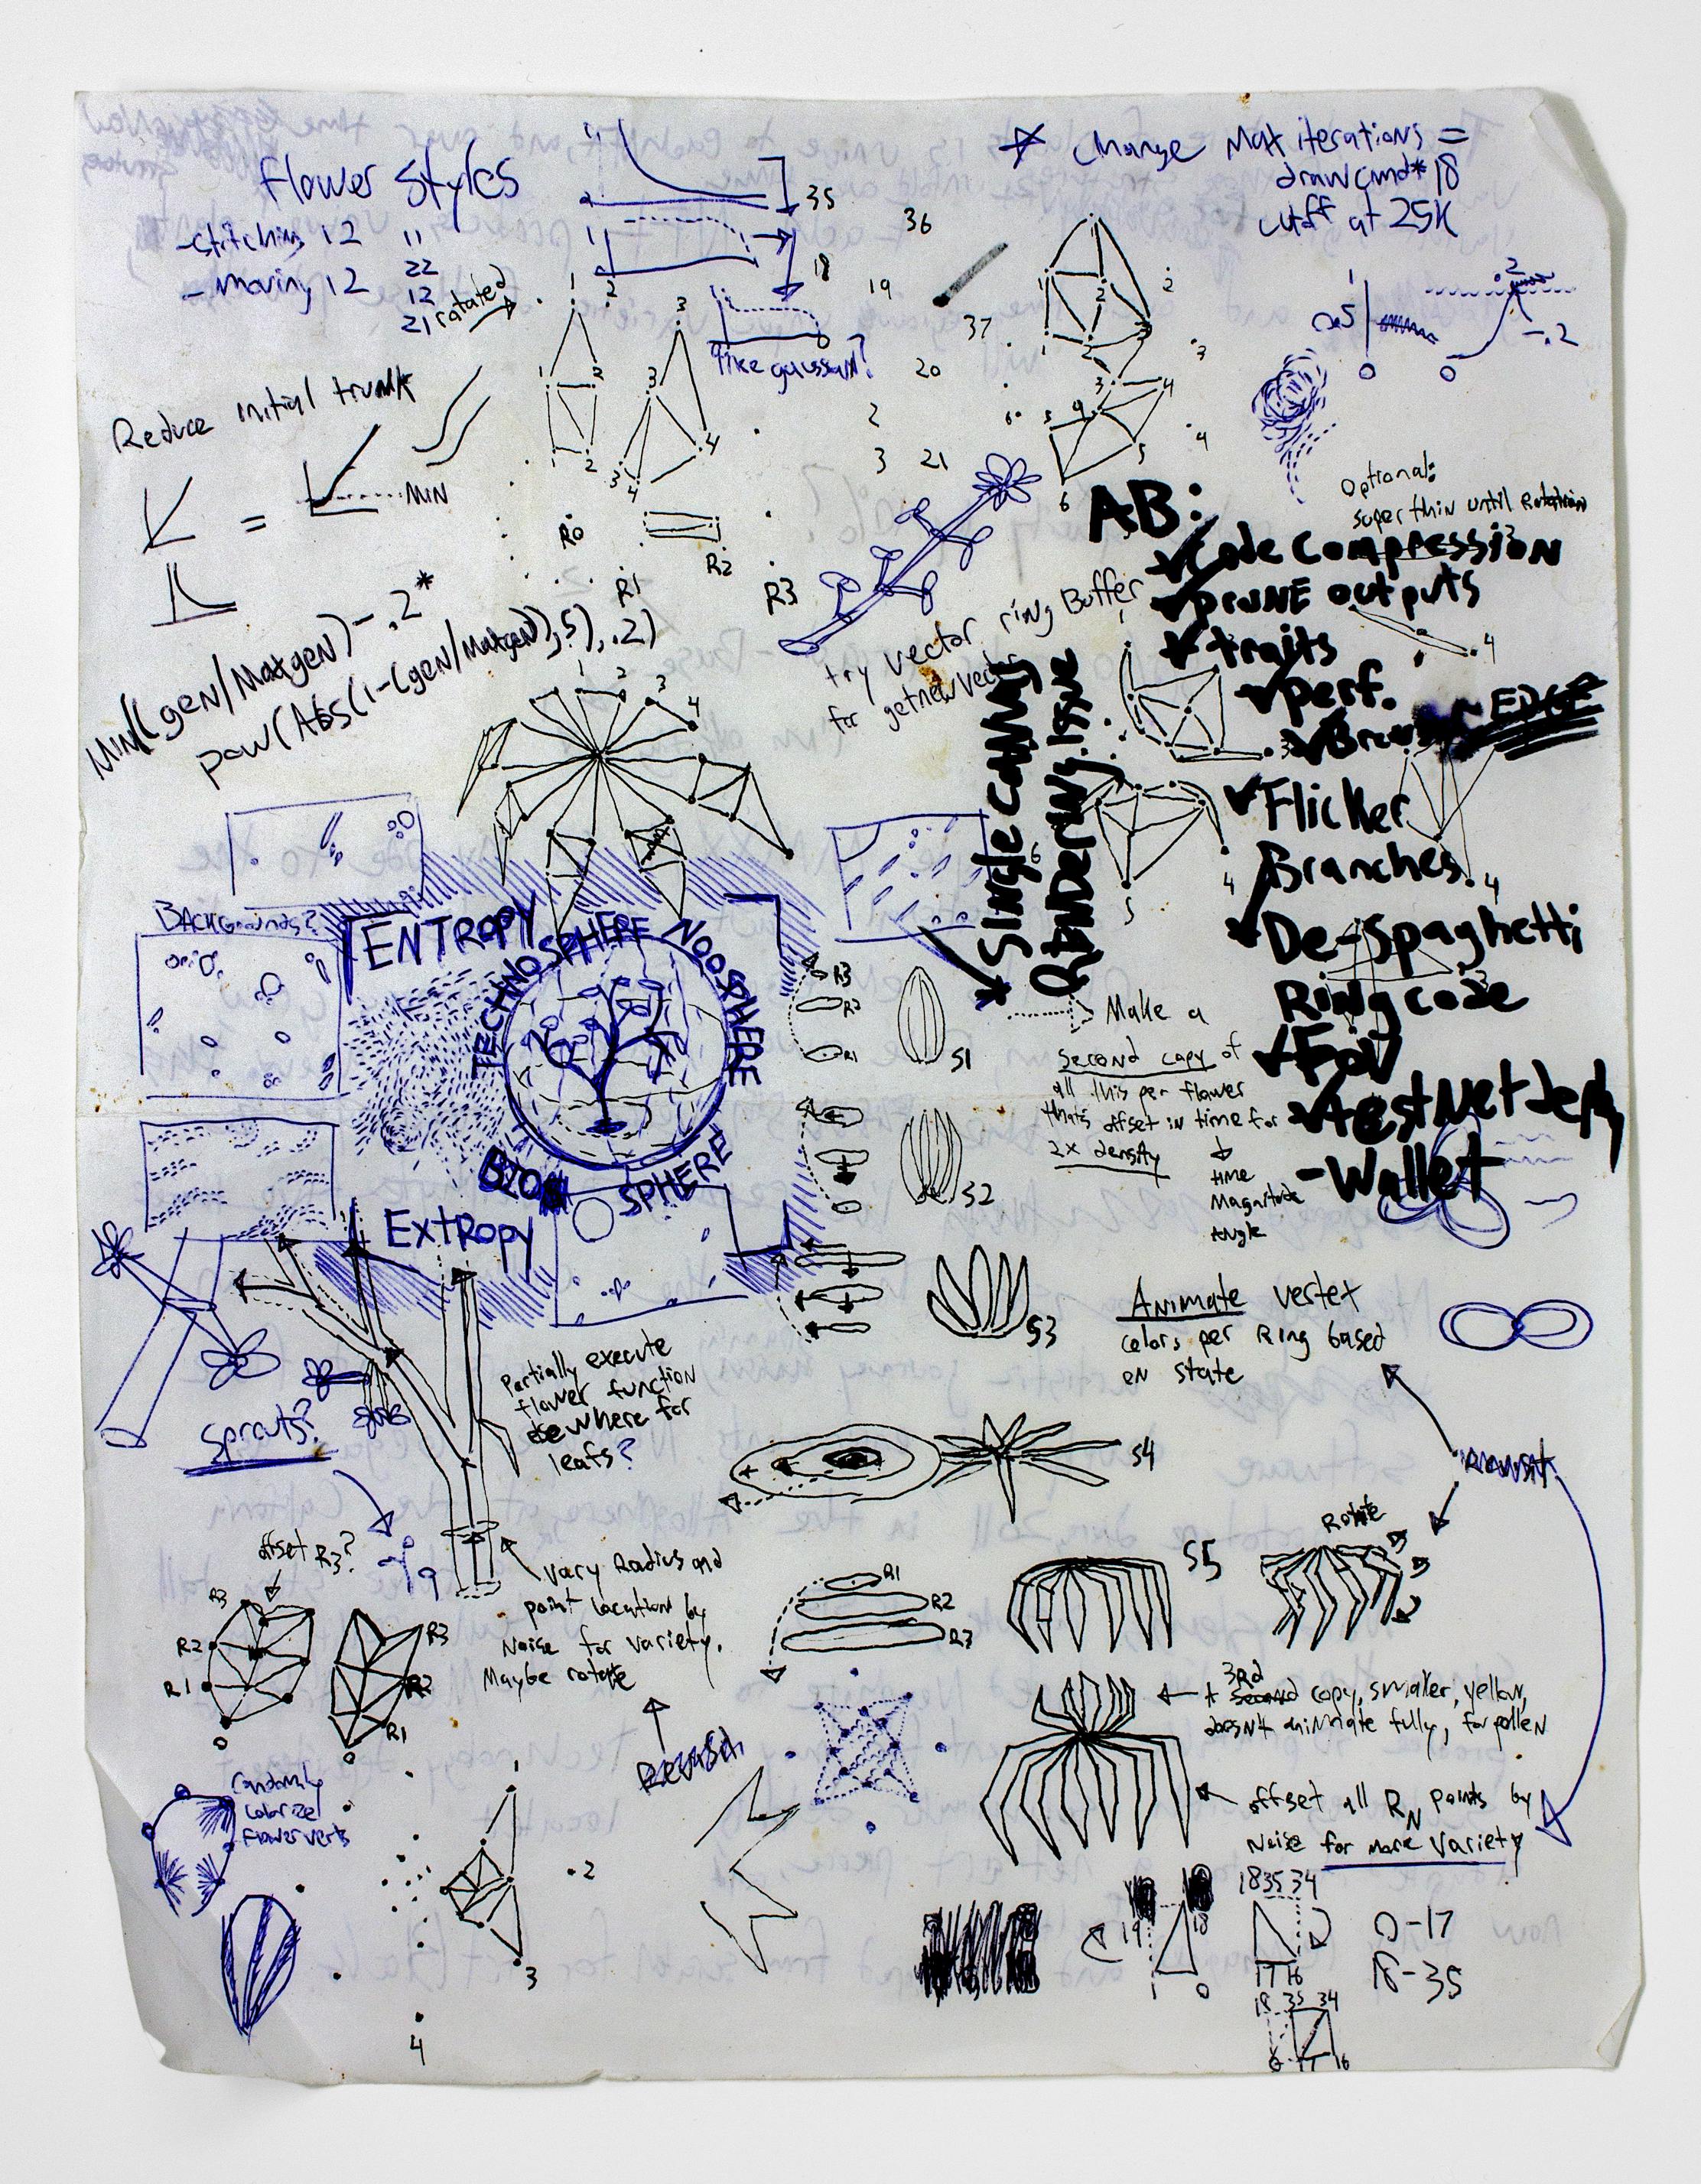 Flower Styles
-stitching 12
- moving 12
11
22
12
21
rotated
35
18
like gaussian?
36
19
37
20
2
3 21
* Change Max iterations =
drawcmd*18
cutoff at 25K
Reduce initial trunk
= MIN
R0
R1
R2
R3
MIN((gen/Maxgen)-.2*
pow(Abs(1-(gen/Maxgen)),5),.2)
try vector ring Buffer
for getnewVector
Optional:
super thin until Rotation
AB:
Code Compression
prune outputs
traits
perf.
EDGE
Flicker
Branches
De-Spaghetti
Ring code
FoV
testNet deply
-Wallet
Single canvas
Rendering issue
BACKgrounds?
ENTROPY
TECHNOSPHERE
NOOSPHERE
BIO SPHERE
Extropy
R3
R2
R1
S1
S2
S3
S4
S5
Make a
second copy of
all this per flower
thats offset in time for
2x density
time
Magnitude
Angle
Animate vertex
colors per Ring based
on state
Partially execute
flower function
elsewhere for
leafs?
Sprouts?
offset R3?
R3
R2
R1
0
R3
R2
R1
0
vary Radius and
point location by
Noise for variety.
Maybe rotate
R1
R2
R3
Rotate
3Rd
copy, smaller, yellow,
doesn't animate fully, for pollen
offset all RN points by
Noise for more variety
randomly
colorize
flower verts
1
2
3
4
19 18
1 0
18 35 34
17 16
0-17
18-35
18 35 34
0 17 16